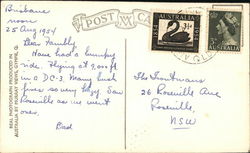 Brisbane
noon
25 Aug 1954
POST CARD
Dear Family,
Have had a bumpy
ride. Flying at 9,000 ft
in a DC-3. Many bush
fires so very hazy. Saw
Roseville as we went
over.
AUSTRALIA
3½D
AUSTRALIA
26 Roseville Ave
Roseville
NSW
REAL PHOTOGRAPH PRODUCED IN
AUSTRALIA BY MURRAY VIEWS, GYMPIE, Q.